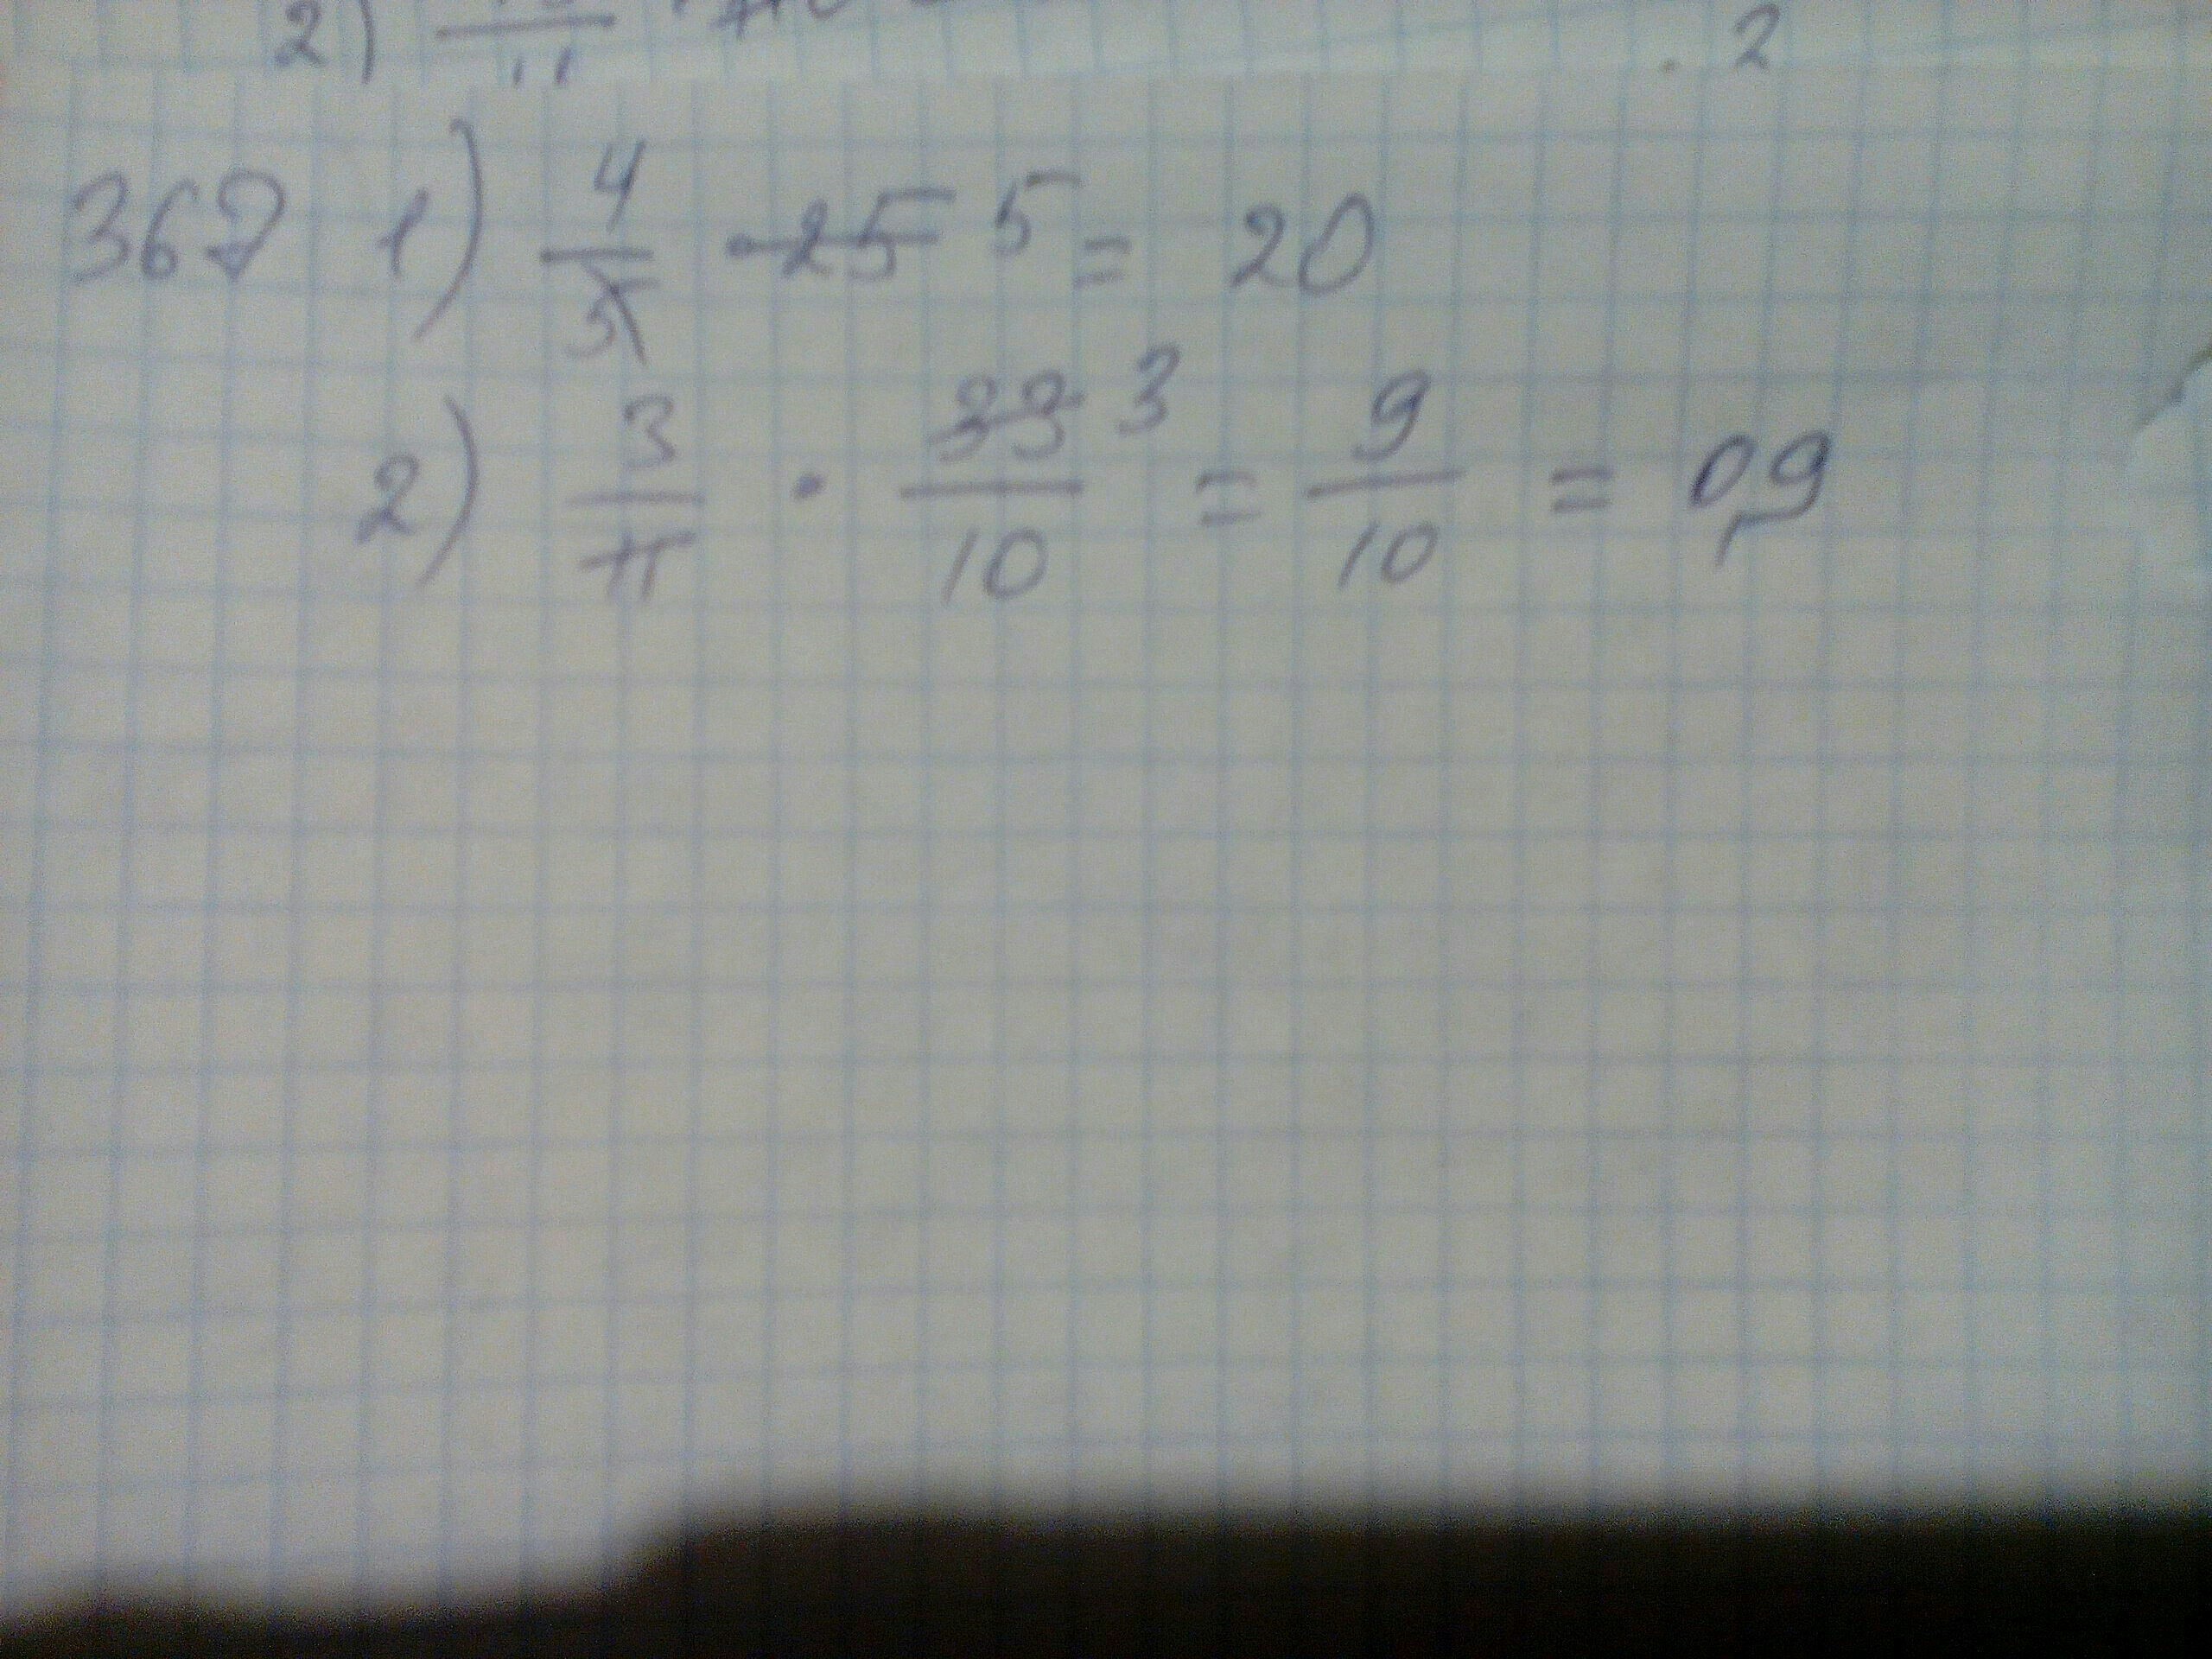 2) 11 2
367 1) 4/5 · 25 5 = 20
2) 3/11 · 33/10 3 = 9/10 = 0,9